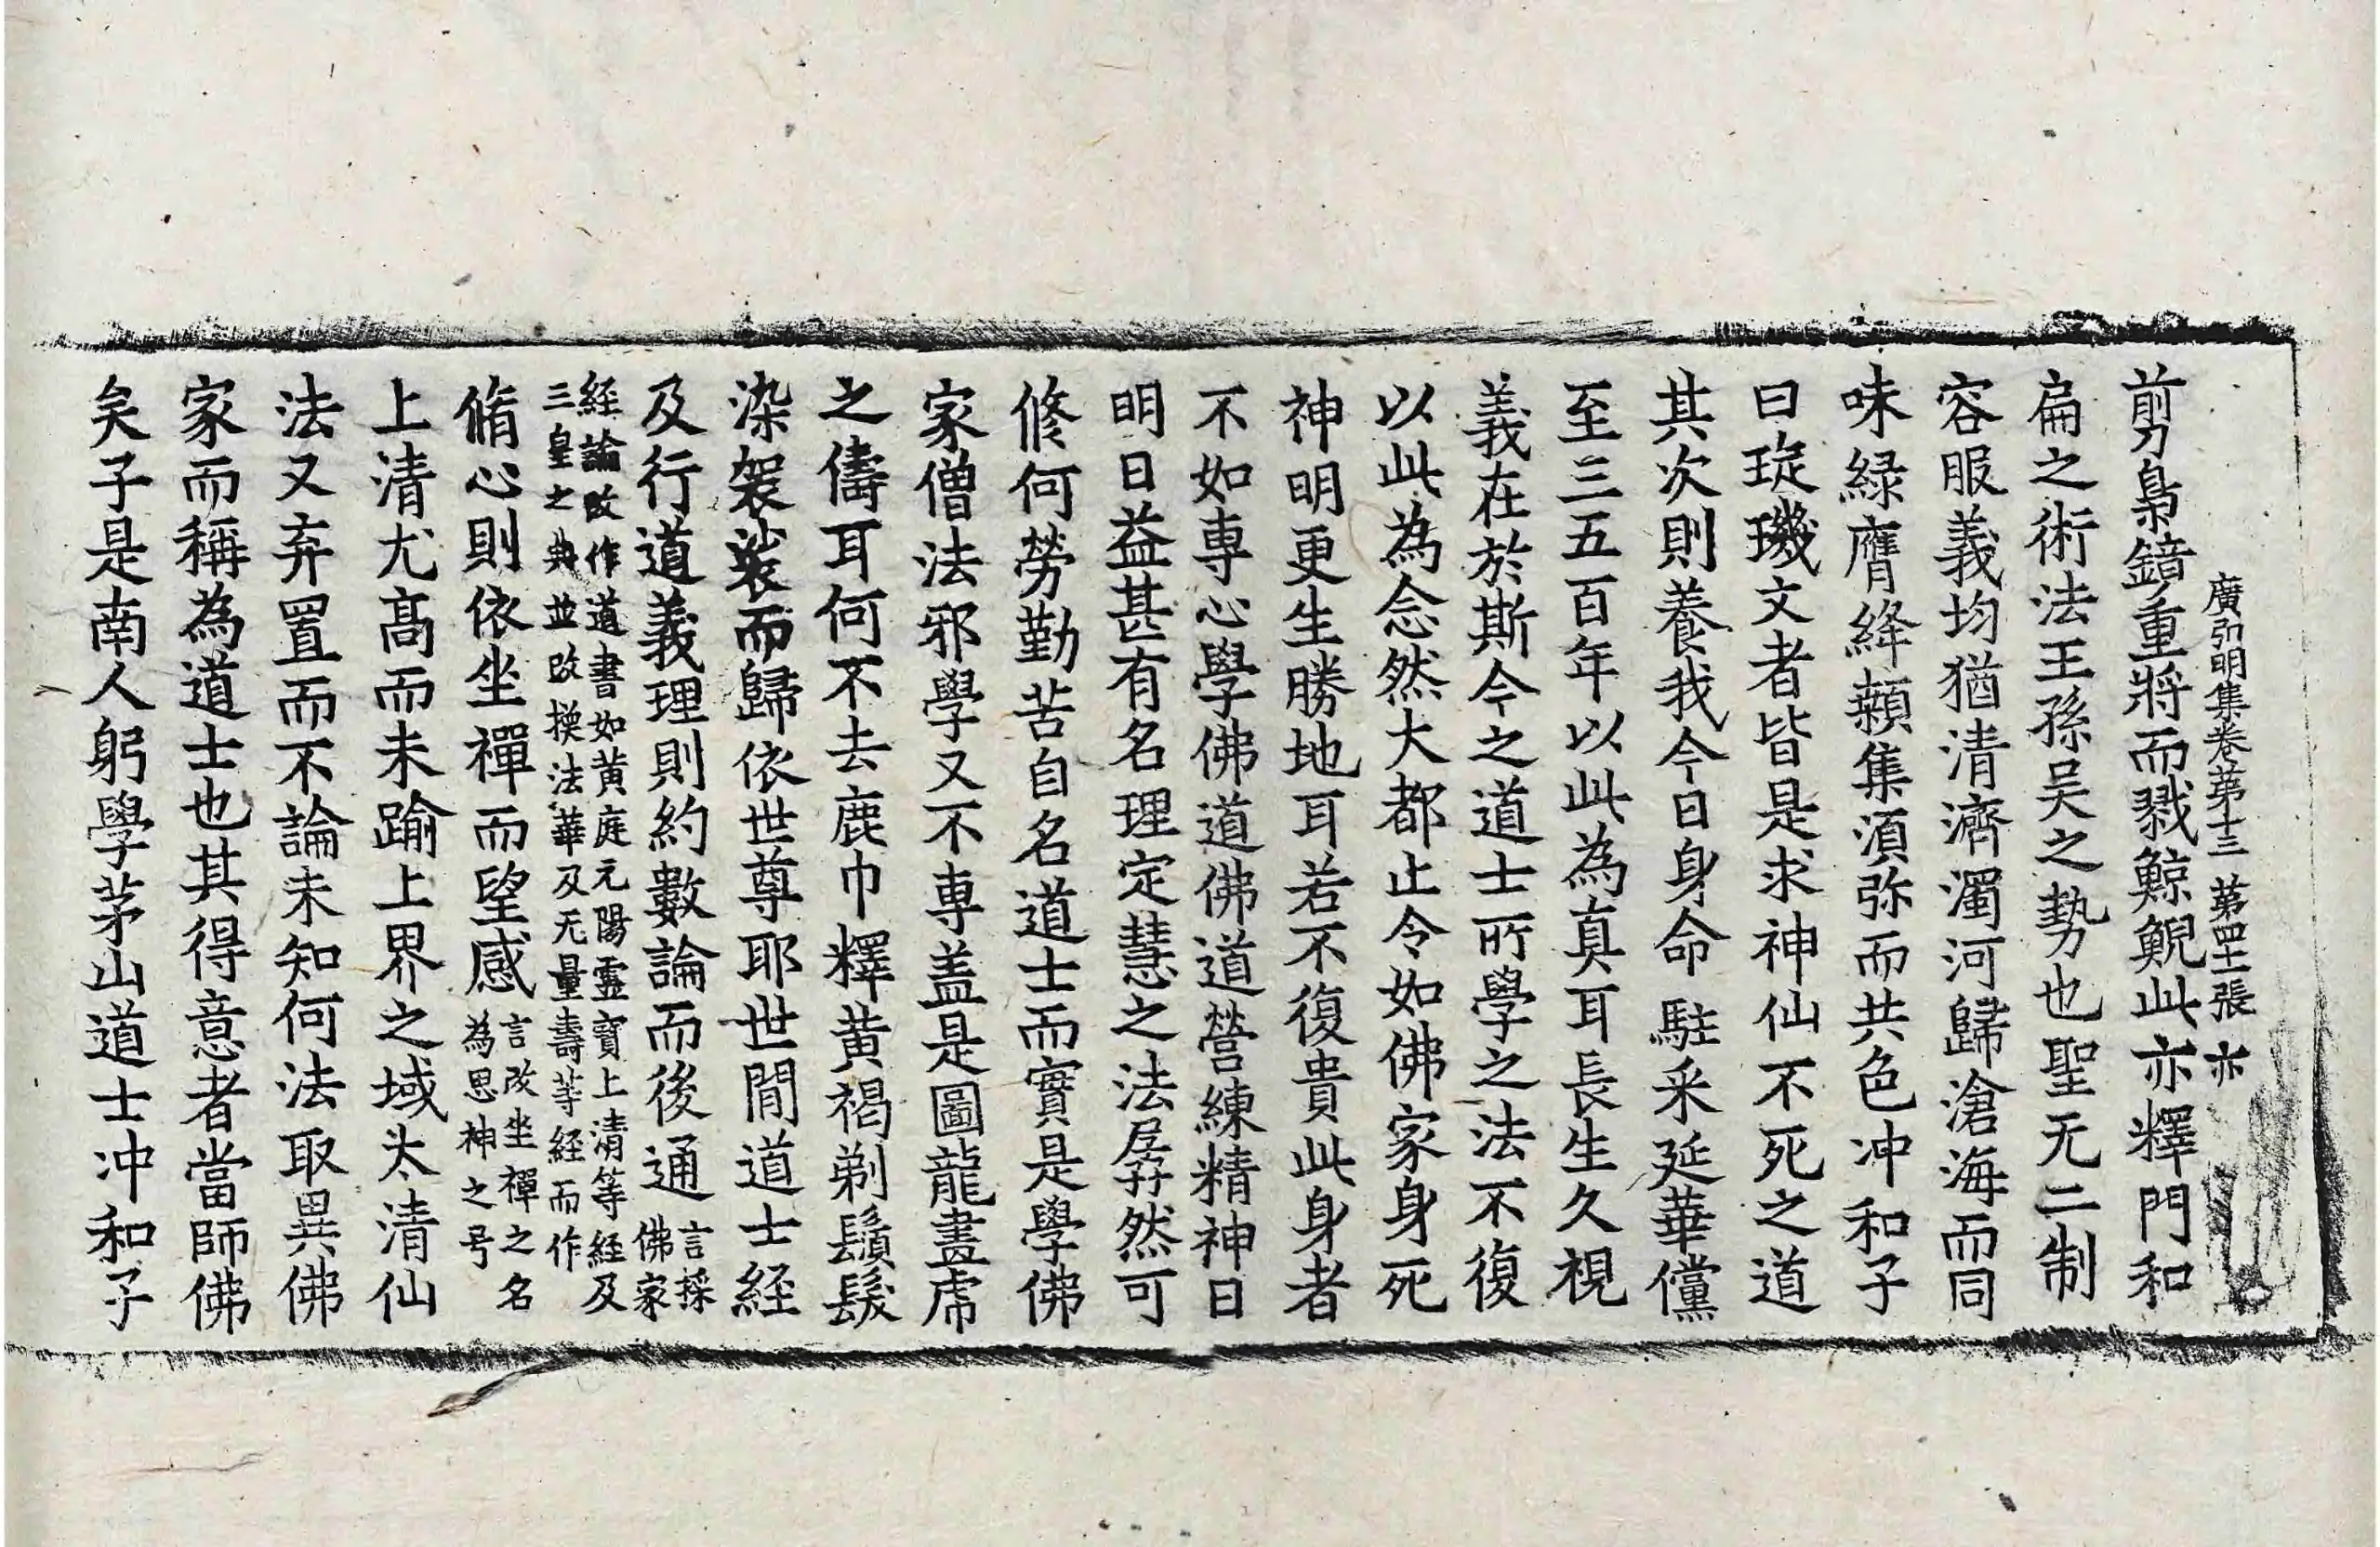 廣弘明集卷第十三 第四十二張 亦
剪梟鏡重將而戮鯨鯢此亦釋門和
扁之術法王孫吴之勢也聖无二制
容服義均猶清濟濁河歸滄海而同
味緑膺絳顙集湏弥而共色冲和子
曰琁璣文者皆是求神仙不死之道
其次則養我今日身命駐采延華儻
至三五百年以此為真耳長生久視
義在於斯今之道士所學之法不復
以此為念然大都止令如佛家身死
神明更生勝地耳若不復貴此身者
不如專心學佛道佛道營練精神日
明日益甚有名理定慧之法孱然可
修何勞勤苦自名道士而實是學佛
家僧法邪學又不專盖是圖龍畫虎
之儔耳何不去鹿巾釋黄褐剃鬚髮
染袈裟而歸依世尊耶世間道士経
及行道義理則約數論而後通言採佛家
経論改作道書如黄庭元陽靈寶上清等経及
三皇之典並改換法華及无量壽等経而作
脩心則依坐禪而望感言改坐禪之名為思神之号
上清尤髙而未踰上界之域太清仙
法又弃置而不論未知何法取異佛
家而稱為道士也其得意者當師佛
矣子是南人躬學茅山道士冲和子